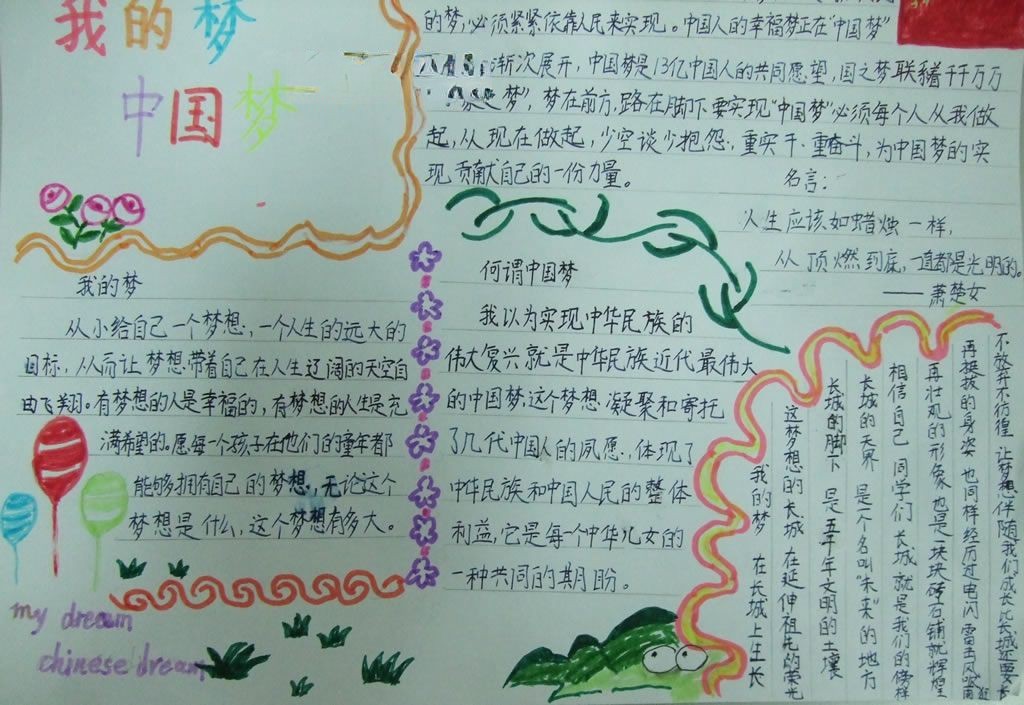 我的梦
中国梦
的梦,必须紧紧依靠人民来实现。中国人的幸福梦正在“中国梦”
渐次展开,中国梦是13亿中国人的共同愿望,国之梦联系着千千万万
梦”,梦在前方,路在脚下.要实现“中国梦”必须每个人从我做
起,从现在做起,少空谈少抱怨,重实干、重奋斗,为中国梦的实
现贡献自己的一份力量。
名言:
人生应该如蜡烛一样,
从顶燃到底,一直都是光明的。
——萧楚女
我的梦
从小给自己一个梦想,一个人生的远大的
目标,从而让梦想带着自己在人生辽阔的天空自
由飞翔。有梦想的人是幸福的,有梦想的人生是充
满希望的。愿每一个孩子在他们的童年都
能够拥有自己的梦想,无论这个
梦想是什么,这个梦想有多大。
何谓中国梦
我以为实现中华民族的
伟大复兴就是中华民族近代最伟大
的中国梦,这个梦想凝聚和寄托
了几代中国人的夙愿、体现了
中华民族和中国人民的整体
利益,它是每一个中华儿女的
一种共同的期盼。
不放弃不彷徨 让梦想伴随我们成长 比长城还要长
再挺拔的身姿 也同样经历过电闪雷击风吹雨
再壮观的形象 也是一块块砖石铺就辉煌
相信自己 同学们 长城就是我们的榜样
长城的天界 是一个名叫“未来”的地方
长城的脚下 是五千年文明的土壤
这梦想的长城 在延伸祖先的荣光
我的梦 在长城上生长
my dream
chinese dream